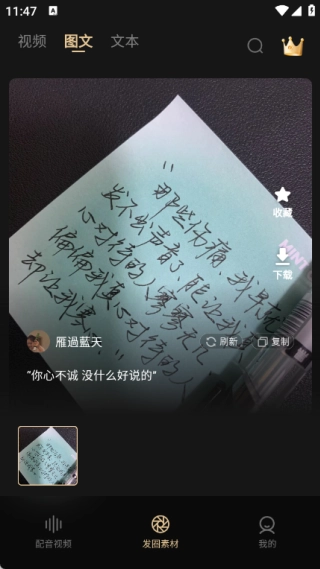 11:47
A
视频 图文 文本
"那些伤痛,我早就
发不出声音了,能让我
心对待的人寥寥无几
偏偏我真心对待的人
却让我寒..."
收藏
下载
MINI
雁過藍天
刷新 复制
“你心不诚 没什么好说的”
配音视频 发圈素材 我的